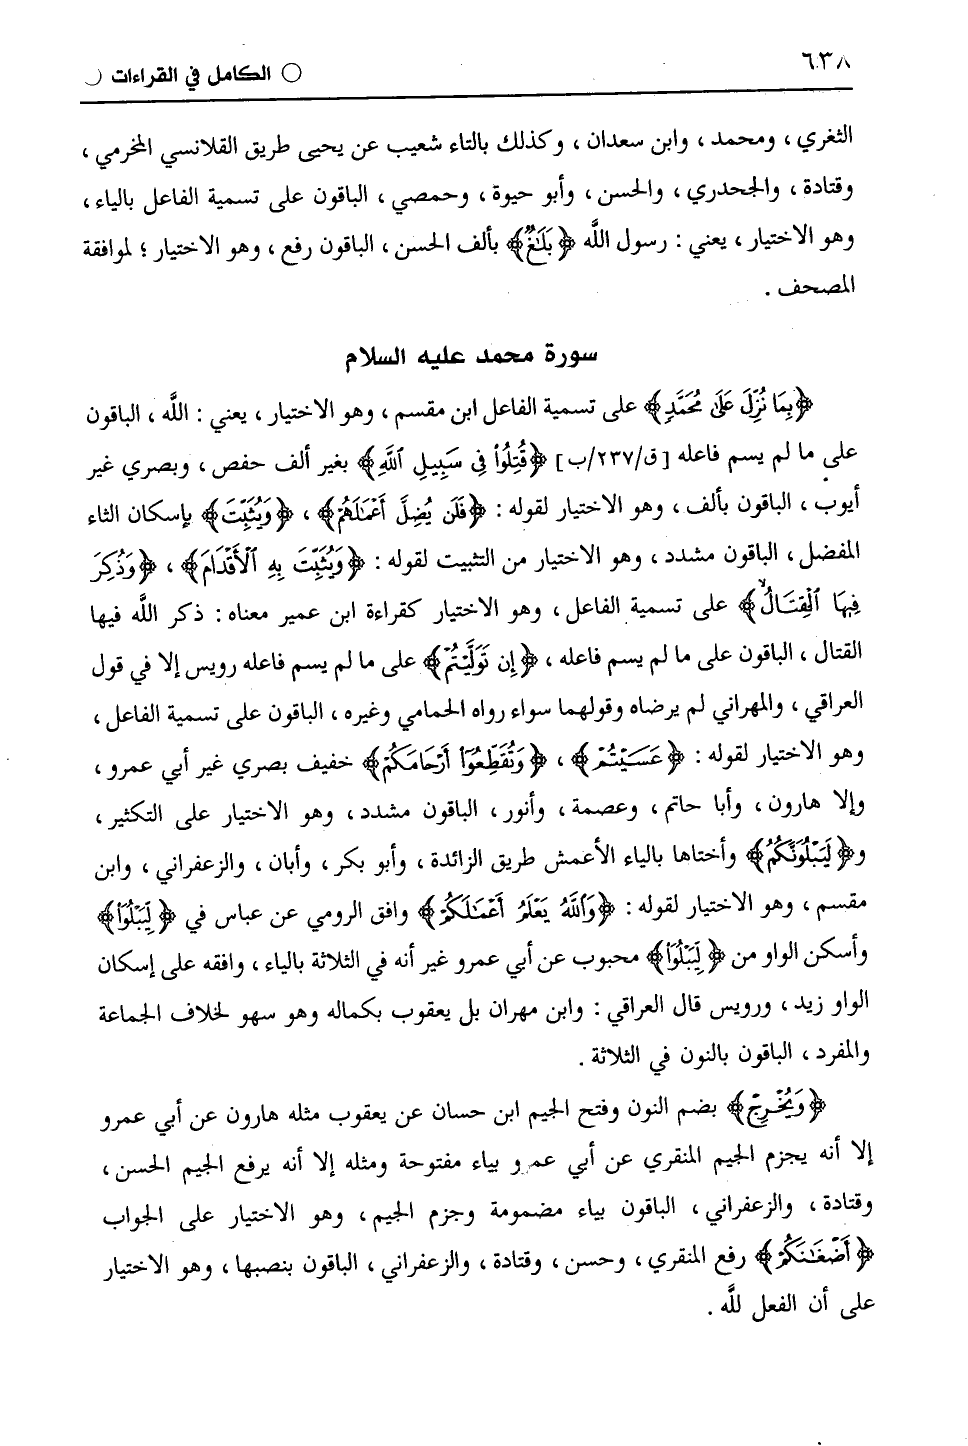 ٦٣٨
الكامل في القراءات
الثغري ، ومحمد ، وابن سعدان ، وكذلك بالتاء شعيب عن يحيى طريق القلانسي المخرمي ،
وقتادة ، والجحدري ، والحسن ، وأبو حيوة ، وحمصي ، الباقون على تسمية الفاعل بالياء ،
وهو الاختيار ، يعني : رسول اللَّه ﴿بَلَٰغٌ﴾ بألف الحسن ، الباقون رفع ، وهو الاختيار ؛ لموافقة
المصحف .
سورة محمد عليه السلام
﴿بِمَا نُزِّلَ عَلَىٰ مُحَمَّدٍ﴾ على تسمية الفاعل ابن مقسم ، وهو الاختيار ، يعني : اللَّه ، الباقون
على ما لم يسم فاعله [ق/٢٣٧/ب] ﴿قُتِلُوا۟ فِي سَبِيلِ ٱللَّهِ﴾ بغير ألف حفص ، وبصري غير
أيوب ، الباقون بألف ، وهو الاختيار لقوله : ﴿فَلَن يُضِلَّ أَعْمَٰلَهُمْ﴾ ، ﴿وَيُثَبِّتْ﴾ بإسكان الثاء
المفضل ، الباقون مشدد ، وهو الاختيار من التثبيت لقوله : ﴿وَيُثَبِّتَ بِهِ ٱلْأَقْدَامَ﴾ ، ﴿وَذُكِرَ
فِيهَا ٱلْقِتَالُ﴾ على تسمية الفاعل ، وهو الاختيار كقراءة ابن عمير معناه : ذكر اللَّه فيها
القتال ، الباقون على ما لم يسم فاعله ، ﴿إِن تَوَلَّيْتُمْ﴾ على ما لم يسم فاعله رويس إلا في قول
العراقي ، والمهراني لم يرضاه وقولهما سواء رواه الحمامي وغيره ، الباقون على تسمية الفاعل ،
وهو الاختيار لقوله : ﴿عَسَيْتُمْ﴾ ، ﴿وَتُقَطِّعُوٓا۟ أَرْحَامَكُمْ﴾ خفيف بصري غير أبي عمرو ،
وإلا هارون ، وأبا حاتم ، وعصمة ، وأنور ، الباقون مشدد ، وهو الاختيار على التكثير ،
و﴿لَيَبْلُوَنَّكُمُ﴾ وأختاها بالياء الأعمش طريق الزائدة ، وأبو بكر ، وأبان ، والزعفراني ، وابن
مقسم ، وهو الاختيار لقوله : ﴿وَٱللَّهُ يَعْلَمُ أَعْمَٰلَكُمْ﴾ وافق الرومي عن عباس في ﴿لِيَبْلُوَا۟﴾
وأسكن الواو من ﴿لِيَبْلُوَا۟﴾ محبوب عن أبي عمرو غير أنه في الثلاثة بالياء ، وافقه على إسكان
الواو زيد ، ورويس قال العراقي : وابن مهران بل يعقوب بكماله وهو سهو لخلاف الجماعة
والمفرد ، الباقون بالنون في الثلاثة .
﴿وَيُخْرِجْ﴾ بضم النون وفتح الجيم ابن حسان عن يعقوب مثله هارون عن أبي عمرو
إلا أنه يجزم الجيم المنقري عن أبي عمرو بياء مفتوحة ومثله إلا أنه يرفع الجيم الحسن ،
وقتادة ، والزعفراني ، الباقون بياء مضمومة وجزم الجيم ، وهو الاختيار على الجواب
﴿أَضْغَٰنَكُمْ﴾ رفع المنقري ، وحسن ، وقتادة ، والزعفراني ، الباقون بنصبها ، وهو الاختيار
على أن الفعل للَّه .